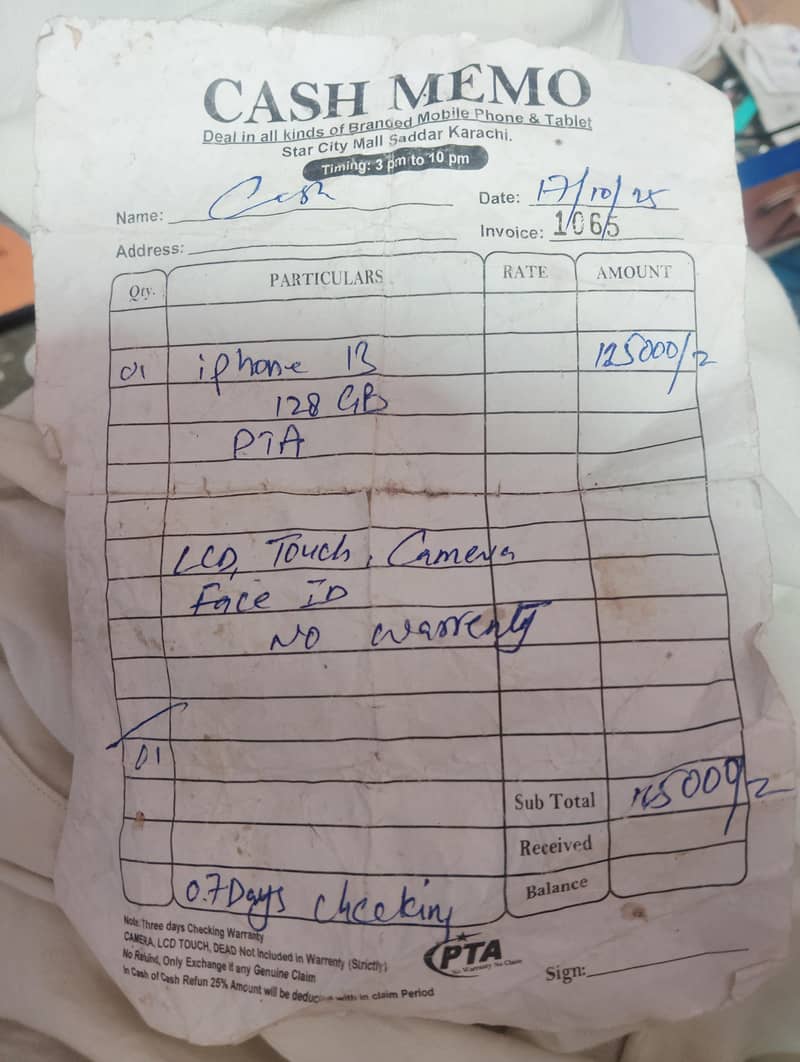 CASH MEMO
Deal in all kinds of Branded Mobile Phone & Tablet
Star City Mall Saddar Karachi.
Timing: 3 pm to 10 pm
Name: Cash Date: 17/10/25
Address: Invoice: 1065
Qty. PARTICULARS RATE AMOUNT
01 iphone 13 125000/2
128 GB
PTA
LCD, Touch, Camera
Face ID
No warrenty
01
Sub Total
Received
Balance
0.7 Days checking
Note: Three days Checking Warranty
CAMERA, LCD TOUCH, DEAD Not Included in Warrenty (Strictly)
No Refund, Only Exchange If any Genuine Claim
In Cash of Cash Refun 25% Amount will be with in claim Period
PTA
No Warranty No Claim
Sign: